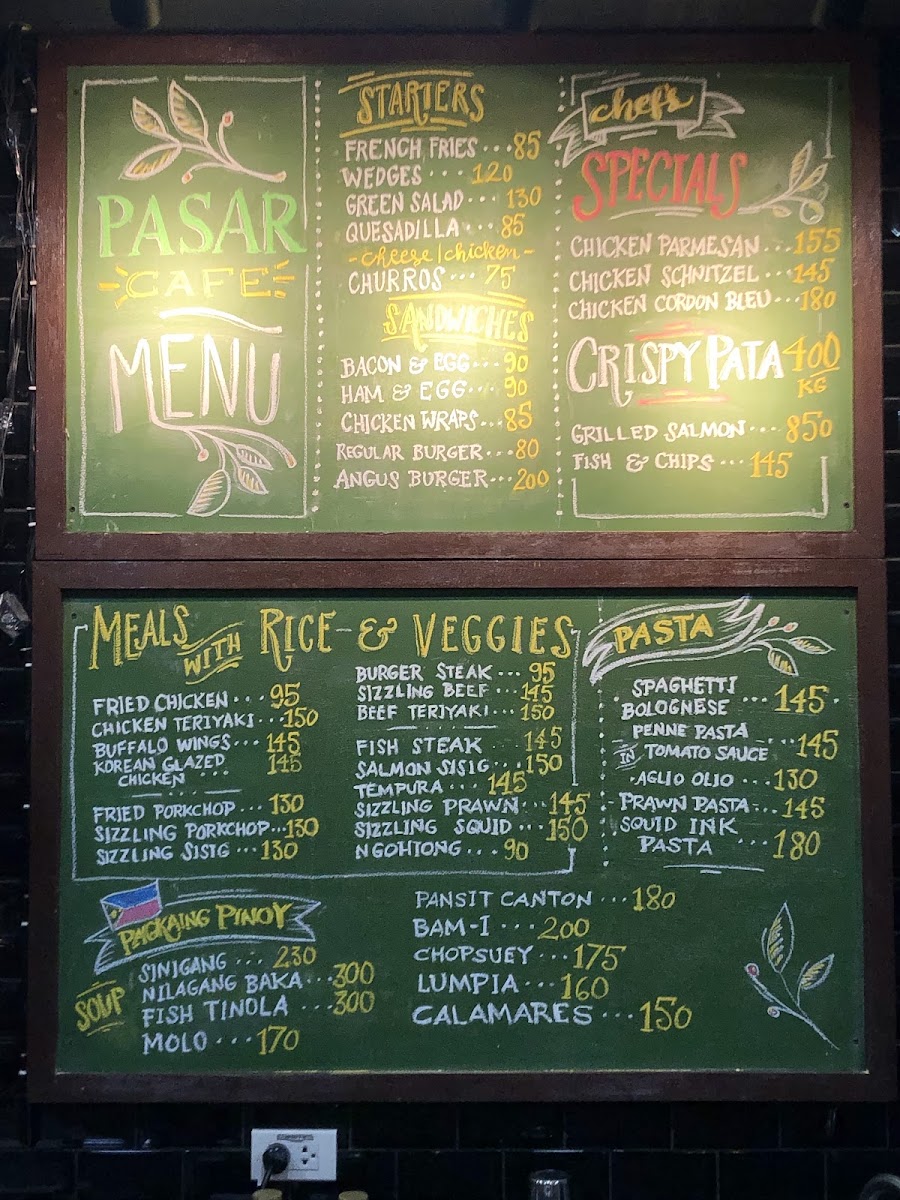 PASAR
CAFE
MENU
STARTERS
FRENCH FRIES ... 85
WEDGES ... 120
GREEN SALAD ... 130
QUESADILLA ... 85
- cheese/chicken -
CHURROS ... 75
SANDWICHES
BACON & EGG ... 90
HAM & EGG ... 90
CHICKEN WRAPS ... 85
REGULAR BURGER ... 80
ANGUS BURGER ... 200
chef's
SPECIALS
CHICKEN PARMESAN ... 155
CHICKEN SCHNITZEL ... 145
CHICKEN CORDON BLEU ... 180
CRISPY PATA 400
KG
GRILLED SALMON ... 850
FISH & CHIPS ... 145
MEALS WITH RICE & VEGGIES
FRIED CHICKEN ... 95
CHICKEN TERIYAKI ... 150
BUFFALO WINGS ... 145
KOREAN GLAZED
CHICKEN ... 145
FRIED PORKCHOP ... 130
SIZZLING PORKCHOP ... 130
SIZZLING SISIG ... 130
BURGER STEAK ... 95
SIZZLING BEEF ... 145
BEEF TERIYAKI ... 150
FISH STEAK ... 145
SALMON SISIG ... 150
TEMPURA ... 145
SIZZLING PRAWN ... 145
SIZZLING SQUID ... 150
NGOHIONG ... 90
PASTA
SPAGHETTI
BOLOGNESE ... 145
PENNE PASTA
IN TOMATO SAUCE ... 145
AGLIO OLIO ... 130
PRAWN PASTA ... 145
SQUID INK
PASTA ... 180
PAGKAING PINOY
SOUP
SINIGANG ... 230
NILAGANG BAKA ... 300
FISH TINOLA ... 300
MOLO ... 170
PANSIT CANTON ... 180
BAM-I ... 200
CHOPSUEY ... 175
LUMPIA ... 160
CALAMARES ... 150